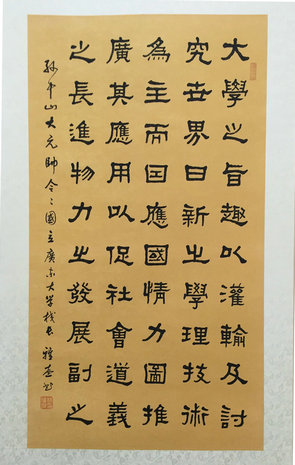 大學之旨趣以灌輸及討
究世界日新之學理技術
為主而因應國情力圖推
廣其應用以促社會道義
之長進物力之發展副之
孫中山大元帥令〻國立廣东大学校长